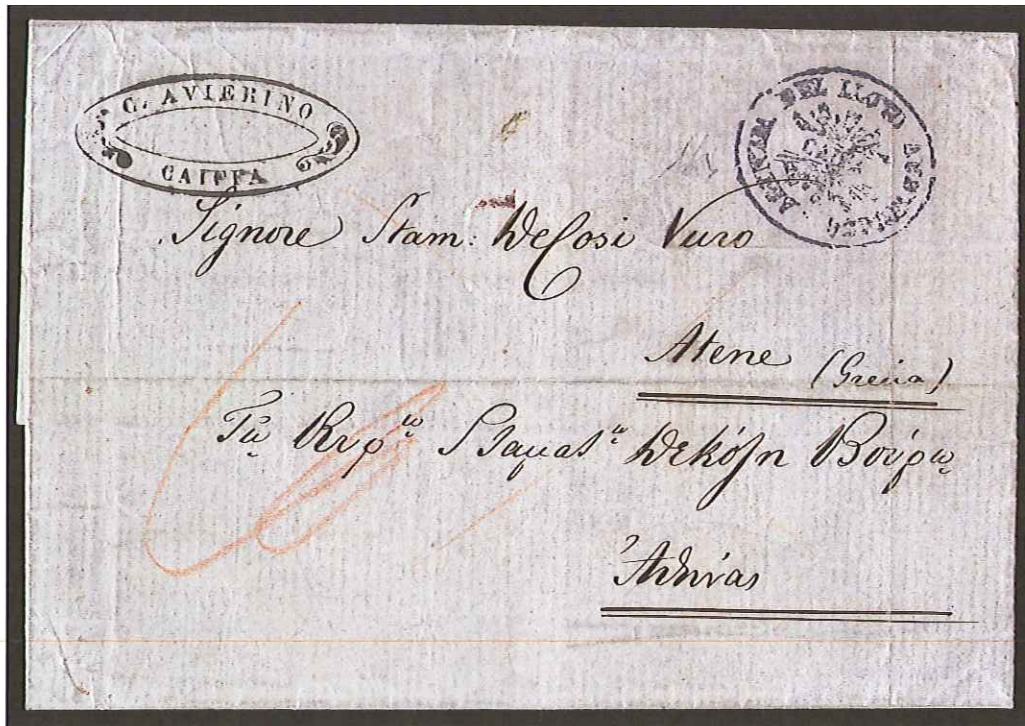 G. AVIERINO
CAIFFA
AGENZIA DEL LLOYD AUSTRIACO
Signore Stam: DeCosi Vuro
Atene (Grecia)
Τῷ Κυρ^ίῳ Σταματ^ῳ Δεκόζη Βούρῳ
Ἀθήνας